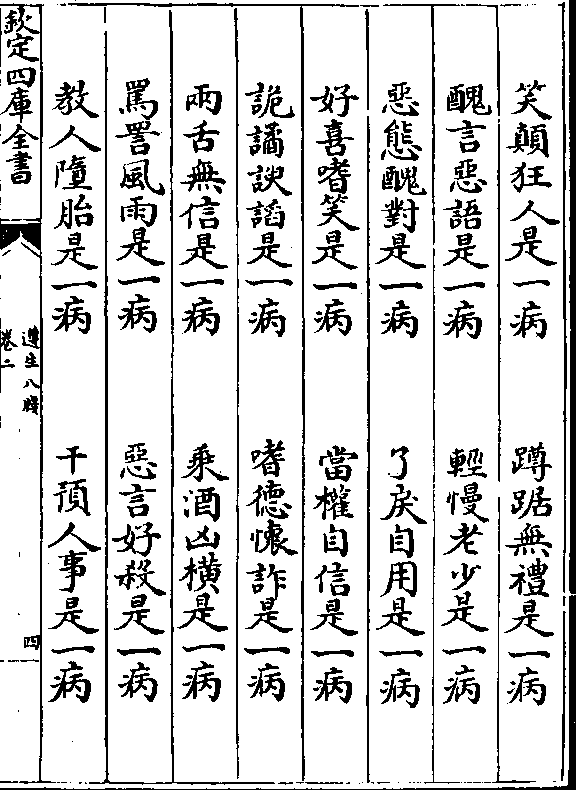 笑顛狂人是一病　蹲踞無禮是一病
醜言惡語是一病　輕慢老少是一病
惡態醜對是一病　了戾自用是一病
好喜嗜笑是一病　當權自信是一病
詭譎諛謟是一病　嗜德懷詐是一病
兩舌無信是一病　乘酒凶橫是一病
罵詈風雨是一病　惡言好殺是一病
教人墮胎是一病　干預人事是一病
欽定四庫全書
遵生八牋
卷二
四